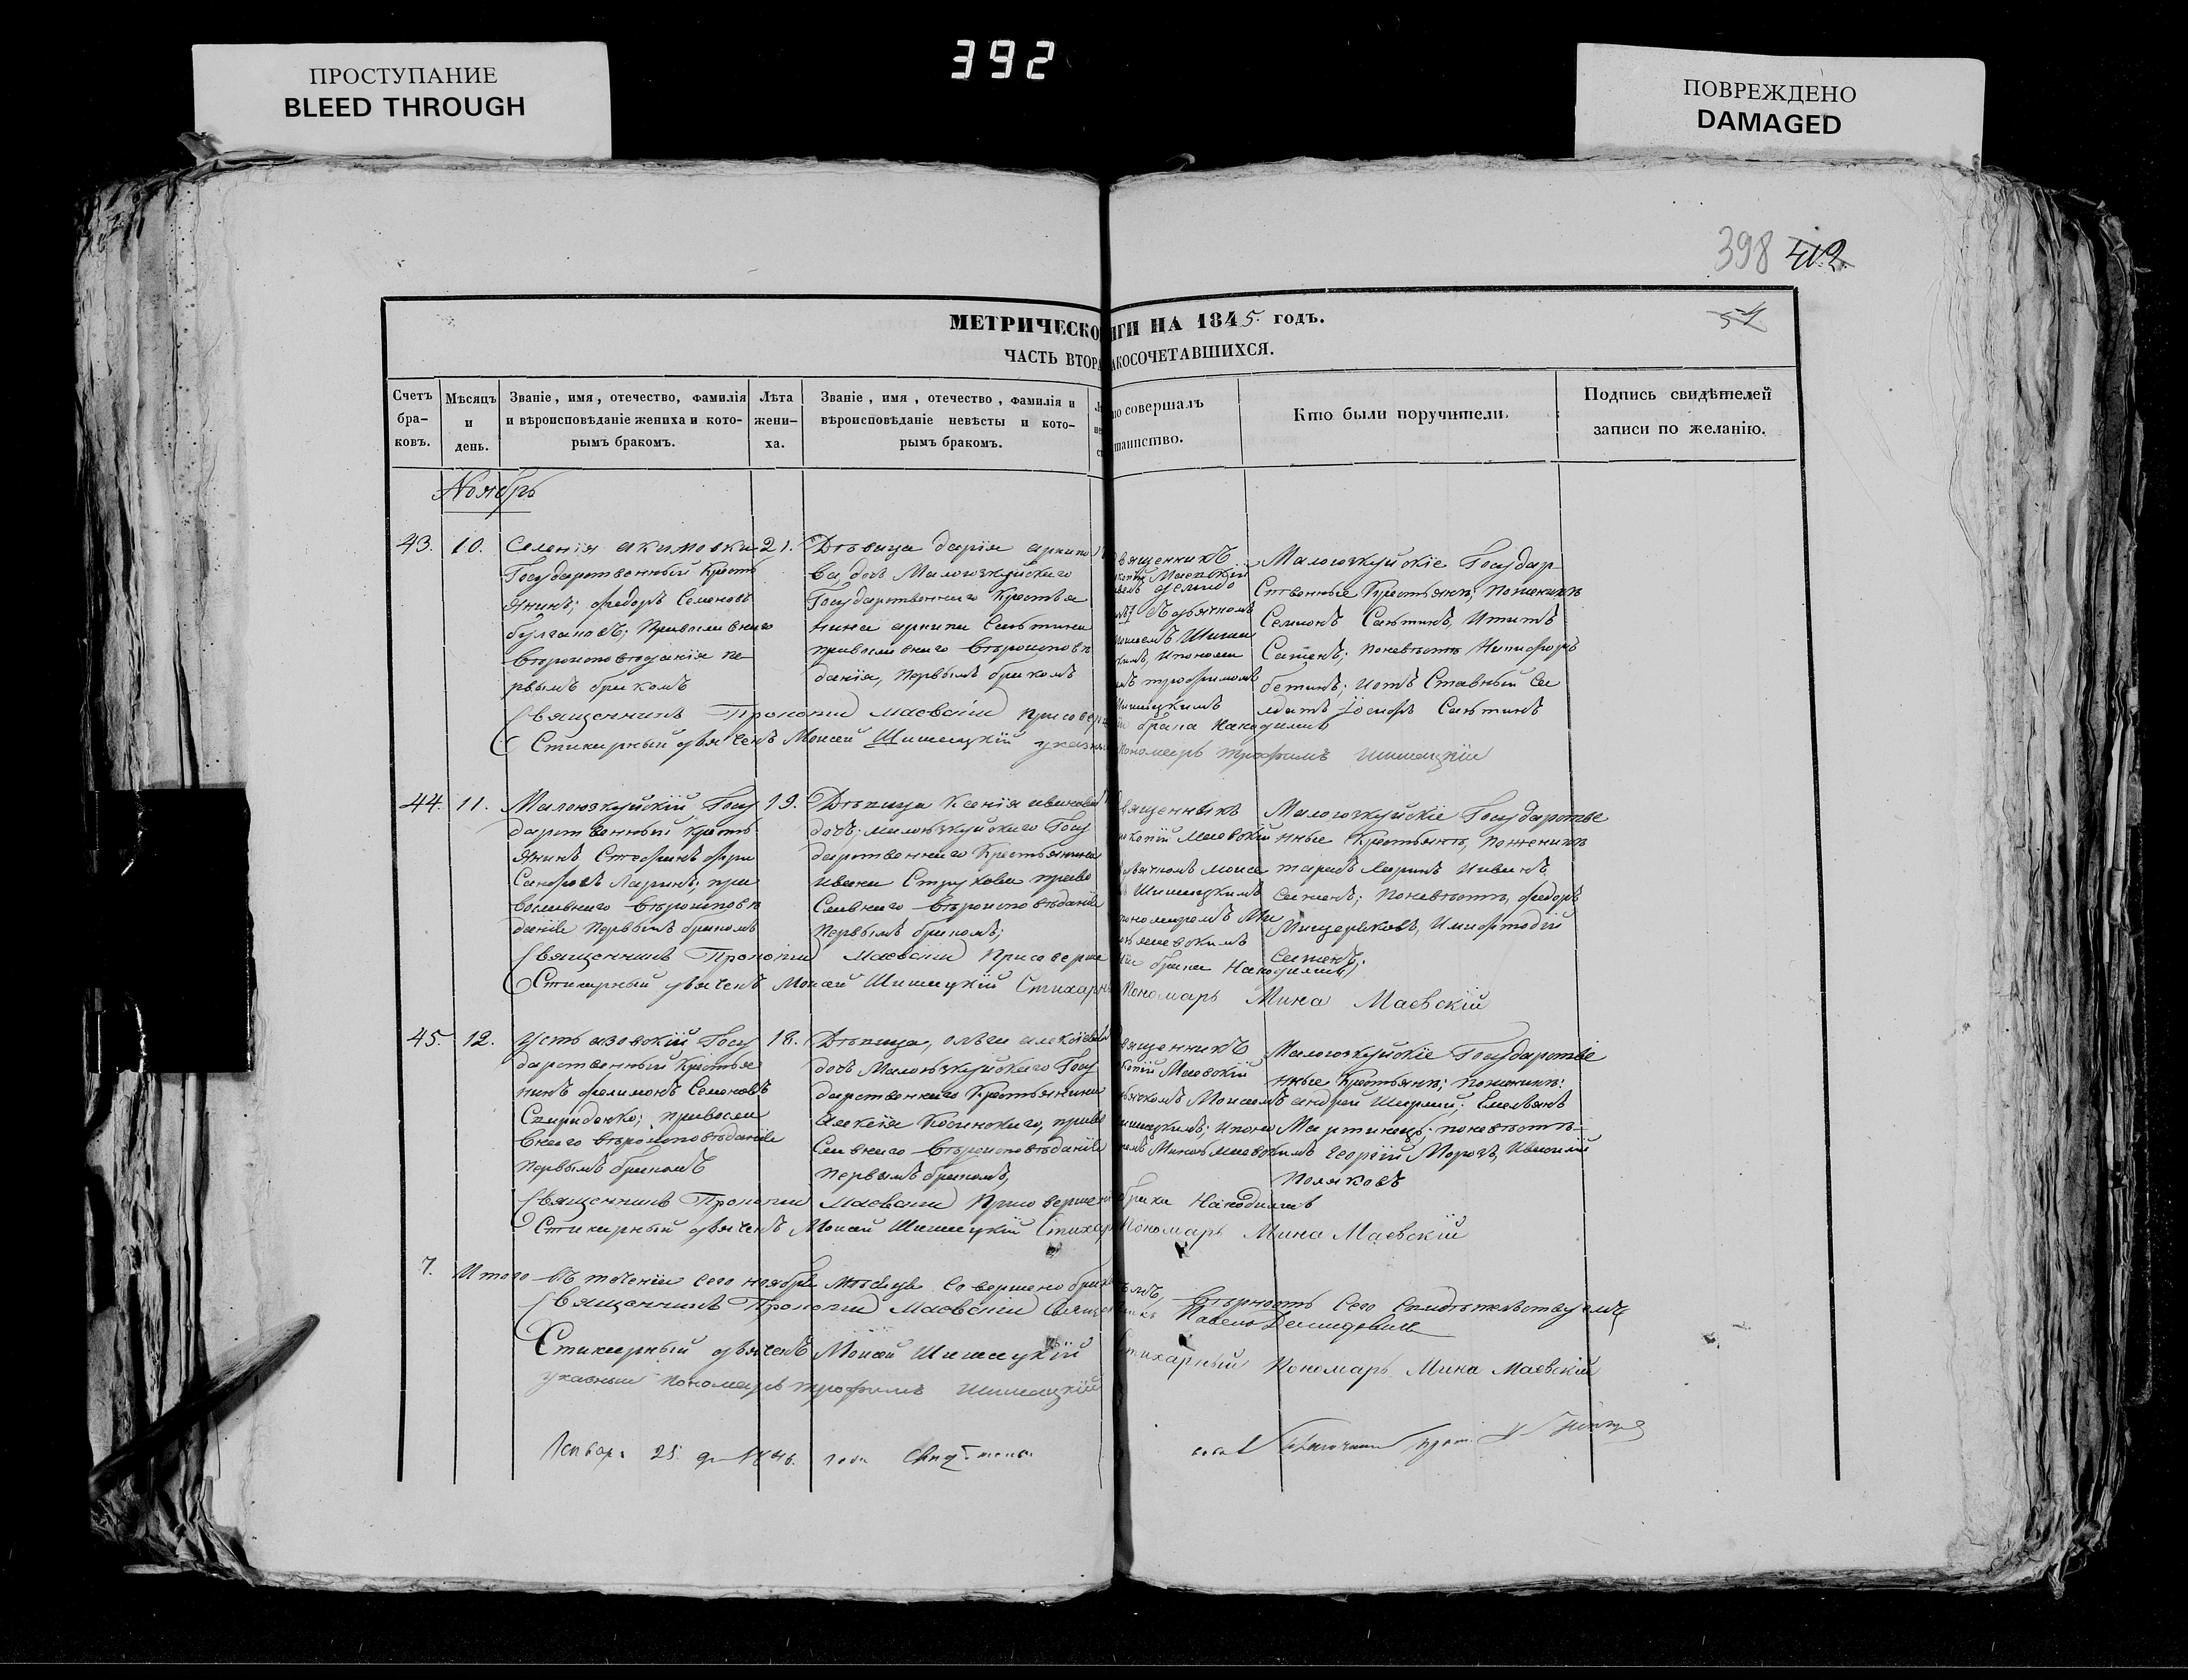 ПРОСТУПАНИЕ
BLEED THROUGH
392
ПОВРЕЖДЕНО
DAMAGED
398 412
54
МЕТРИЧЕСКО
ГИ НА 1845. годъ.
ЧАСТЬ ВТОРА
АКОСОЧЕТАВШИХСЯ.
Счетъ бра-ковъ.
Мѣсяцъ и день.
Званіе, имя, отечество, фамилія
и вѣроисповѣданіе жениха и кото-
рымъ бракомъ.
Лѣта жени-ха.
Званіе, имя, отечество, фамилія и
вѣроисповѣданіе невѣсты и кото-
рымъ бракомъ.
то совершалъ
таинство.
Кто были поручители.
Подпись свидѣтелей
записи по желанію.
Ноябрь
43. 10.
Селенія акимовки
Государственный Кресть
янинъ; Федоръ Семеновъ
булгаковъ; Православнаго
Вѣроисповѣданія пе
рвымъ бракомъ
21.
Дѣвица дарія архипо
ва дочь Малоюзкуйскаго
Государственнаго Крестья
нина архипа
православнаго Вѣроисповѣ
данія, первымъ бракомъ
вященникъ
Маевскій
Шиша
трофимомъ
Шишацкимъ
Малоюзкуйскіе Государ
Ственные Крестьяне; Поженихѣ
Семионъ
поневѣстѣ Никифоръ
Священникъ Прокопій Маевскій Присовер
іи брака Находились
Стихарный дьячекъ Моисей Шишацкій указн
пономарь трофимъ шишацкій
44. 11.
Малоюзкуйскій Госу
дарственный Кресть
янинъ, Стефанъ
Ларинъ; пра
вославнаго Вѣроисповѣ
даніе Первымъ бракомъ
19.
Дѣвица Ксенія иванова
дочь; малоюзкуйскаго Госу
дарственнаго Крестьянина
ивана Струкова право
Славнаго Вѣроисповѣданіе
Первымъ бракомъ;
вященникъ
копій Маевскій
дьячкомъ Моисе
Шишацкимъ
пономаремъ Ми
маевскимъ
Малоюзкуйскіе Государстве
нные Крестьяне, Поженихѣ
тарасъ Ларинъ Иванъ
Поневѣстѣ, федоръ
Мищеряковъ,
Священникъ Прокопій Маевскій Присоверше
іи брака Находились
Стихарный дьячекъ Моисей Шишацкій Стихарн
Пономарь Мина Маевскій
45. 12.
Усть азовскій Госу
дарственный Крестья
нинъ филимонъ Семеновъ
Спиридонко; правосла
внаго вѣроисповѣданіе
Первымъ бракомъ
18.
Дѣвица, алексіева
дочь Малоюзкуйскаго Госу
дарственнаго Крестьянина
Алексія Косинскаго, право
Славнаго Вѣроисповѣданіе
Первымъ бракомъ,
вященникъ
копій Маевскій
ячкомъ Моисеемъ
шишацкимъ; Ипоно
Миною маевскимъ
Малоюзкуйскіе Государстве
нные Крестьяне; поженихѣ:
андрей Емельянъ
Мартинецъ; поневѣстѣ
Георгій Морозъ,
Поляковъ
Священникъ Прокопій Маевскій Присовершені
брака Находились
Стихарный дьячекъ Моисей Шишацкій Стихар
Пономарь Мина Маевскій
7. Итого въ теченіи сего ноября Мѣсяца Совершено брак
Вѣрность Сего Свидѣтельствуемъ
Священникъ Прокопій Маевскій Священ
никъ Павелъ Демидовичъ
Стихарный дьячекъ Моисей Шишацкій
Стихарный Пономарь Мина Маевскій
указный пономарь трофимъ шишацкій
Января 25 1846. года